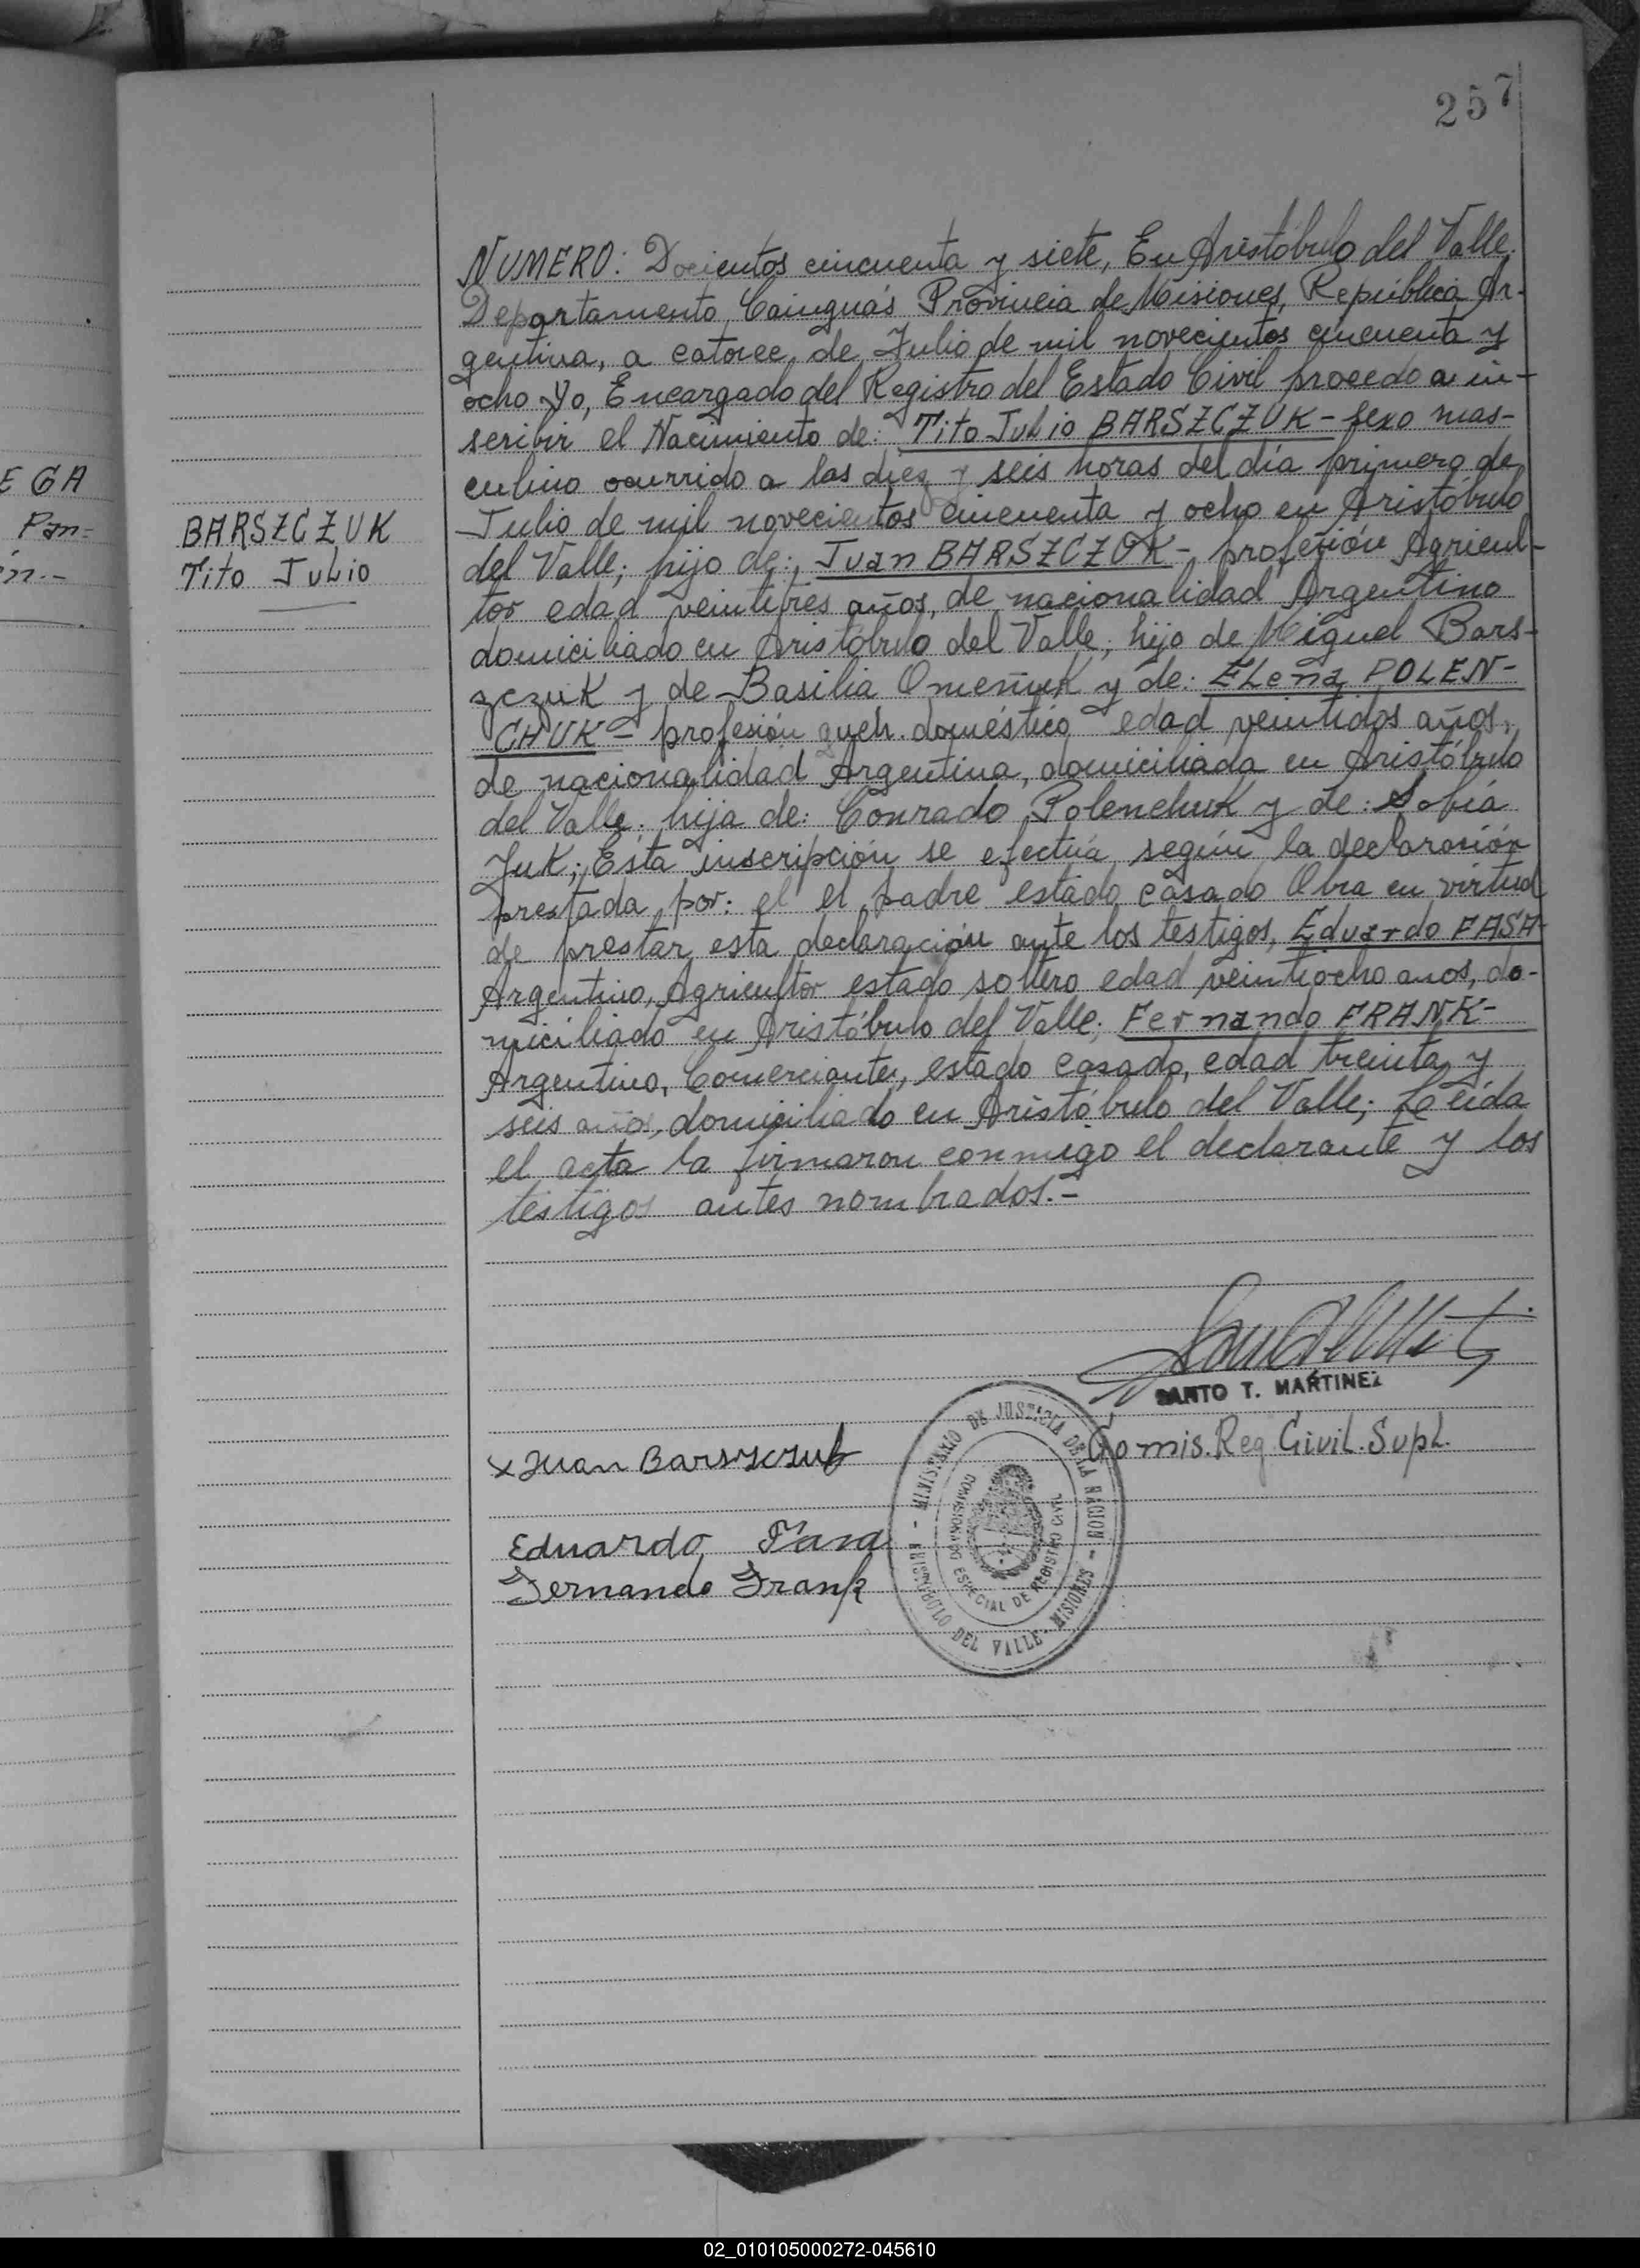 257
E GA
Pan=
én.-
BARSZCZUK
Tito Julio
NUMERO: Docientos cincuenta y siete, En Aristóbulo del Valle.
Departamento, Cainguás Provincia de Misiones, República Ar-
gentina, a catorce, de Julio de mil novecientos cincuenta y
ocho Yo, Encargado del Registro del Estado Civil procedo a in-
scribir el Nacimiento de: Tito Julio BARSZCZUK - sexo mas-
culino ocurrido a las diez y seis horas del día primero de
Julio de mil novecientos cincuenta y ocho en Aristóbulo
del Valle; hijo de:, Juan BARSZCZUK - profesión Agricul-
tor edad veintitres años, de nacionalidad Argentino
domiciliado en Aristóbulo del Valle; hijo de Miguel Bars-
zczuk y de Basilia y de: ELena POLEN-
CHUK - profesión queh. doméstico edad veintidos años,
de nacionalidad Argentina, domiciliada en Aristóbulo
del Valle. hija de: Conrado Polenchuk y de: Sofía
Juk; Esta inscripción se efectúa según la declarasión
prestada, por: el el padre estado casado Obra en virtud
de prestar esta declaración ante los testigos, Eduardo FASA-
Argentino, Agricultor estado soltero edad veintiocho anos, do-
miciliado en Aristóbulo del Valle; Fernando FRANK-
Argentino, Comerciante, estado casado, edad treinta y
seis años, domiciliado en Aristóbulo del Valle; Leeída
el acta la firmaron conmigo el declarante y los
testigos antes nombrados.-
SANTO T. MARTINEZ
Comis. Reg. Civil. Supl.
x Juan Barszczuk
Eduardo Fasa
Fernando Frank
MINISTERIO DE JUSTICIA DE LA NACION - ARISTOBULO DEL VALLE - MISIONES -
COMISIONADO ESPECIAL DE REGISTRO CIVIL
02_010105000272-045610